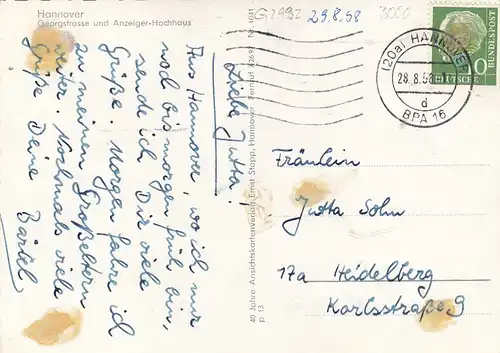 Hannover
Georgstrasse und Anzeiger-Hochhaus
G2992
29.8.58
3000
Liebe Jutta!
Aus Hannover, wo ich nur
noch bis morgen früh bin,
sende ich Dir viele
Grüße. Morgen fahre ich
zu meinen Großeltern
weiter. Nochmals viele
Grüße Deine
Bärbel
40 Jahre Ansichtskartenverlag Ernst Stapp, Hannover
p 13
(20a) HANNOVER
28.8.58
d
BPA 16
DEUTSCHE BUNDESPOST
10
Fräulein
Jutta Sohn
17a Heidelberg
Karlsstraße 9